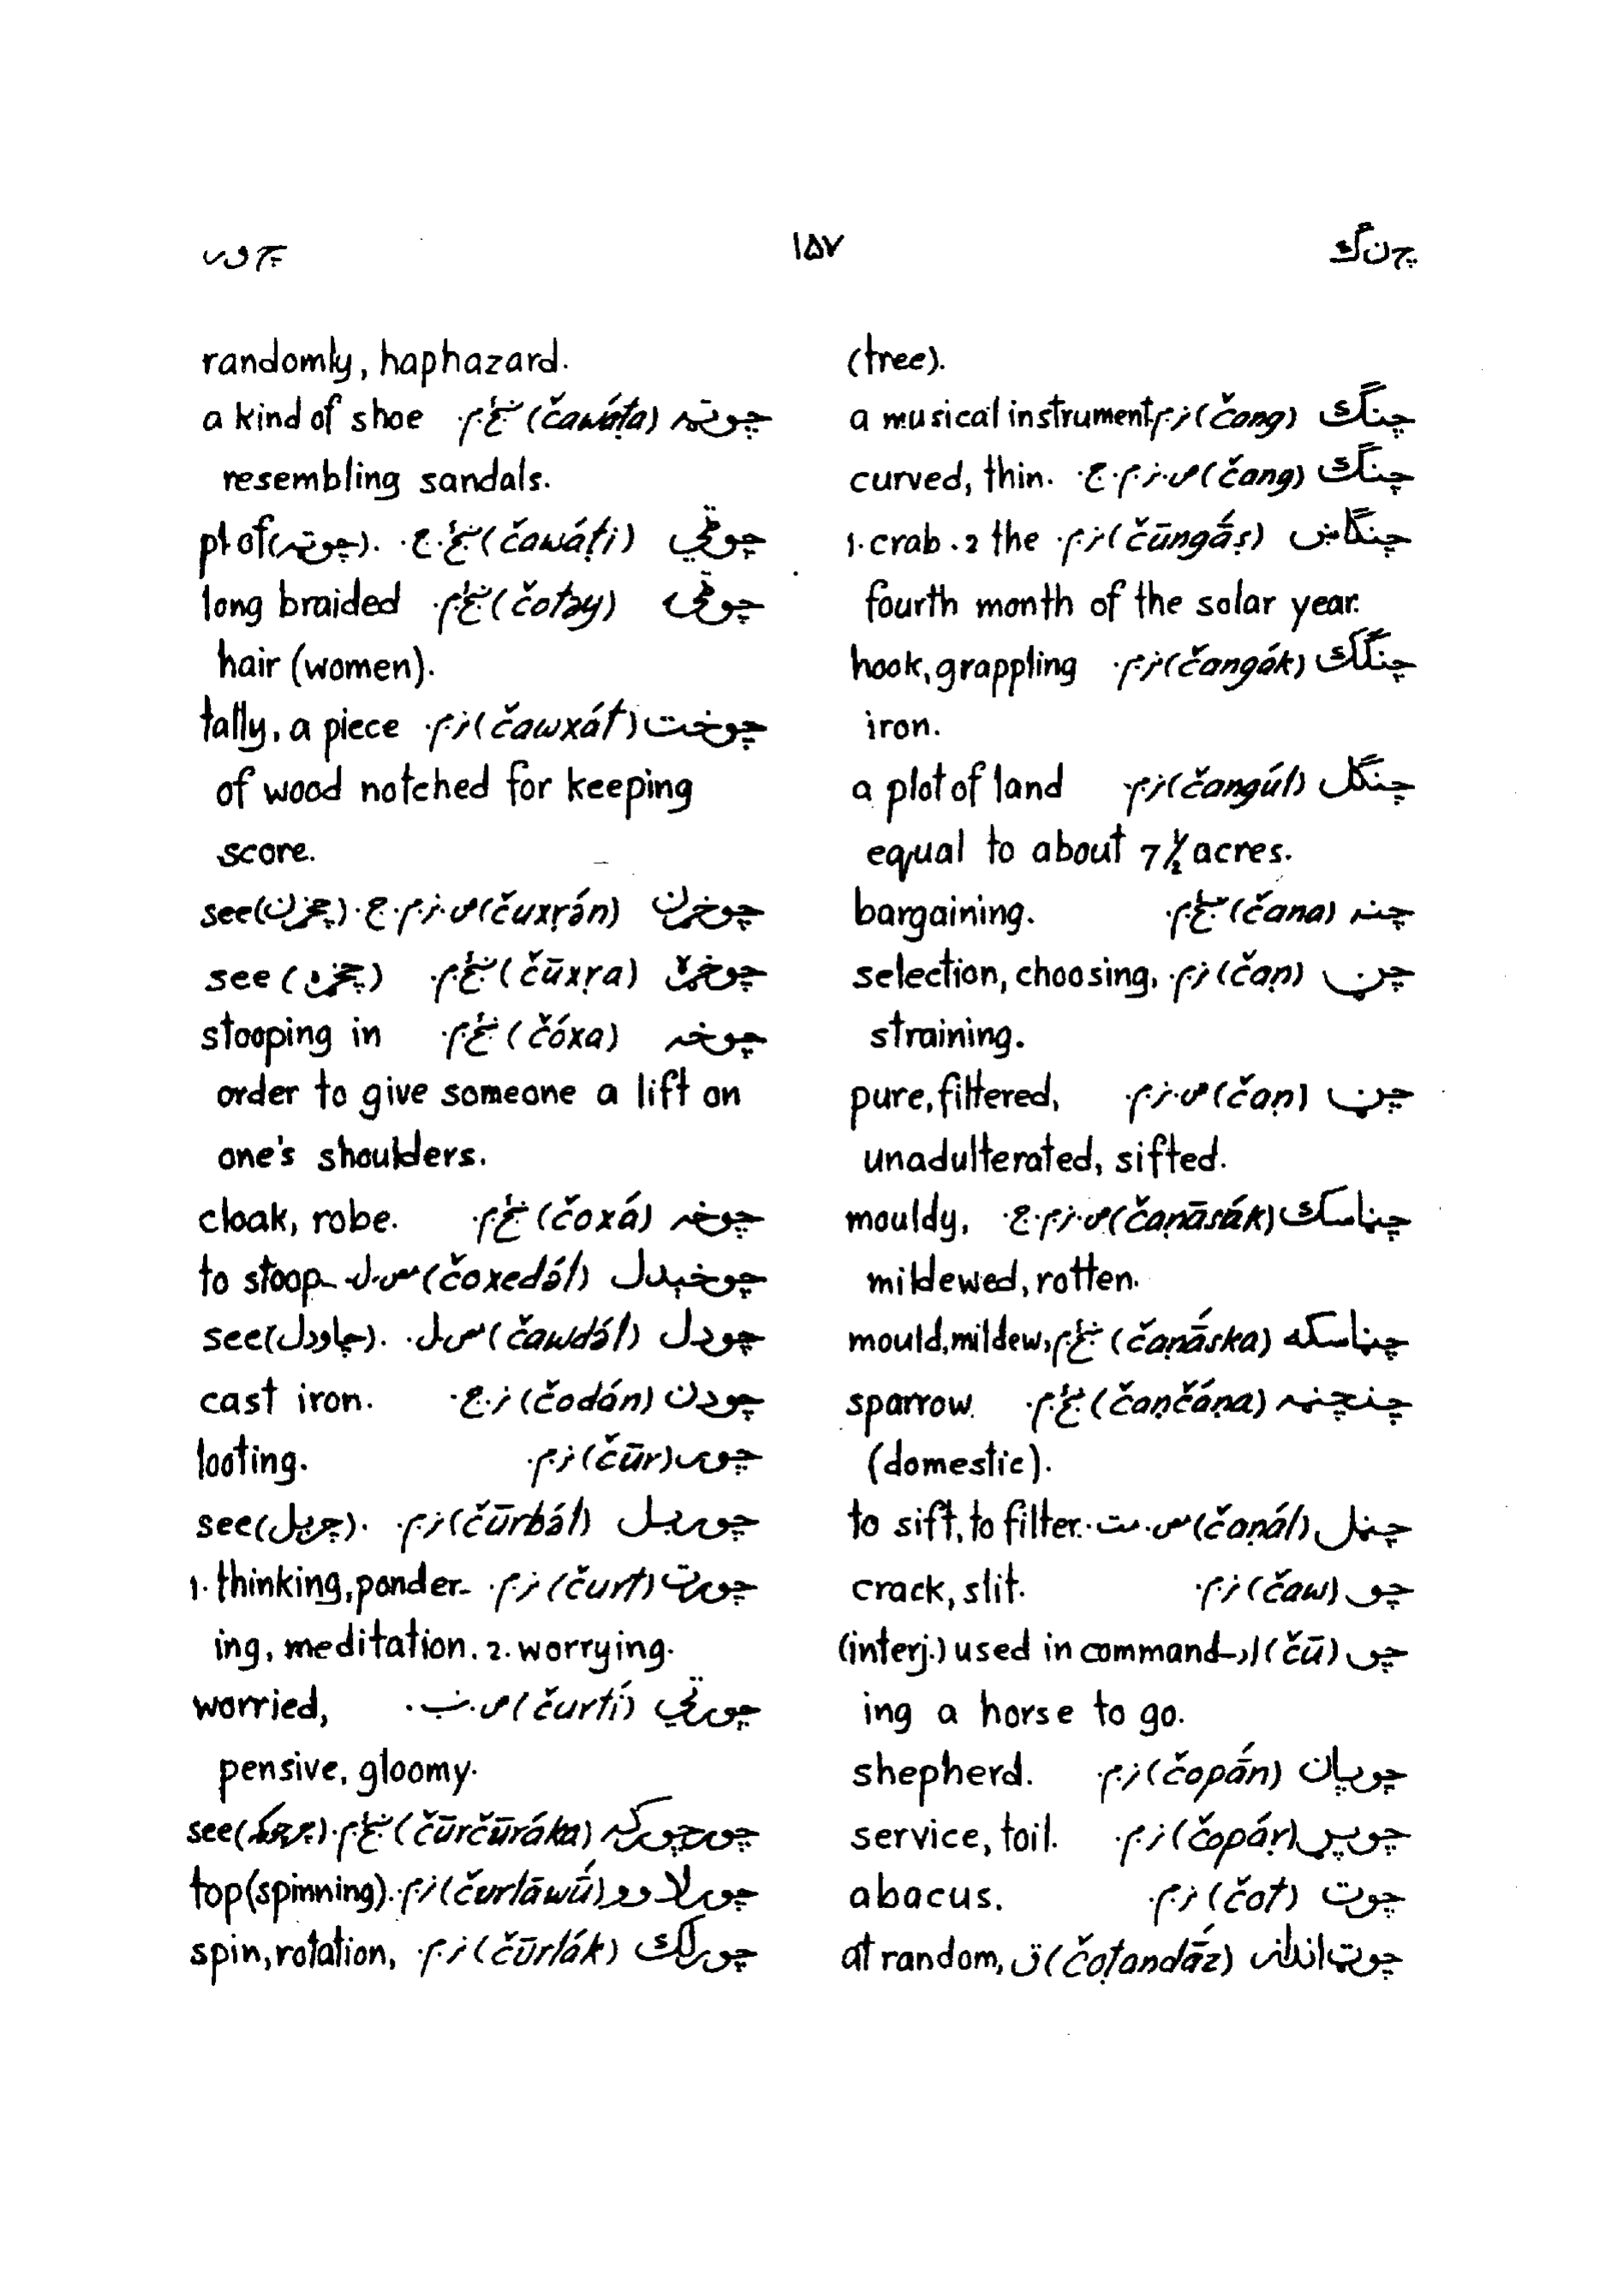 چ ن گ ۱۵۷ چ و ر
(tree).
چنگ (čang) نر.م. a musical instrument
چنگ (čang) ص.نر.م.ج. curved, thin.
چنگاښ (čūngā́ṣ) نر.م. 1. crab. 2 the
fourth month of the solar year.
چنگک (čangák) نر.م. hook, grappling
iron.
چنگل (čangúl) نر.م. a plot of land
equal to about 7½ acres.
چنه (čana) ښځ.م. bargaining.
چڼ (čaṇ) نر.م. selection, choosing,
straining.
چڼ (čaṇ) ص.نر.م. pure, filtered,
unadulterated, sifted.
چڼاسک (čaṇāsák) ص.نر.م.ج. mouldy,
mildewed, rotten.
چڼاسکه (čaṇā́ska) ښځ.م. mould, mildew,
چڼچڼه (čaṇčáṇa) ښځ.م. sparrow.
(domestic).
چڼل (čaṇál) مص.مت. to sift, to filter.
چو (čaw) نر.م. crack, slit.
چو (čū) اد (interj.) used in command-
ing a horse to go.
چوپان (čopā́n) نر.م. shepherd.
چوپړ (čopáṛ) نر.م. service, toil.
چوت (čot) نر.م. abacus.
چوټانداز (čoṭandā́z) ق at random,
randomly, haphazard.
چوټه (čawáṭa) ښځ.م. a kind of shoe
resembling sandals.
چوټي (čawáṭi) ښځ.ج. pl of (چوټه).
چوټۍ (čotəy) ښځ.م. long braided
hair (women).
چوخت (čawxát) نر.م. tally, a piece
of wood notched for keeping
score.
چوخړن (čuxṛə́n) ص.نر.م.ج. see (چخړن)
چوخړه (čūxṛa) ښځ.م. see (چخړه)
چوخه (čóxa) ښځ.م. stooping in
order to give someone a lift on
one's shoulders.
چوخه (čoxá) ښځ.م. cloak, robe.
چوخېدل (čoxedə́l) مص.ل. to stoop
چودل (čawdə́l) مص.ل. see (چاودل).
چودن (čodán) نر.ج. cast iron.
چور (čūr) نر.م. looting.
چوربل (čūrbál) نر.م. see (چربل).
چورت (čurt) نر.م. 1. thinking, ponder-
ing, meditation. 2. worrying.
چورتي (čurtí) ص.ب. worried,
pensive, gloomy.
چورچورکه (čūrčūráka) ښځ.م. see (چرچرکه).
چورلاوو (čurlāwū́) نر.م. top (spinning).
چورلک (čūrlák) نر.م. spin, rotation,